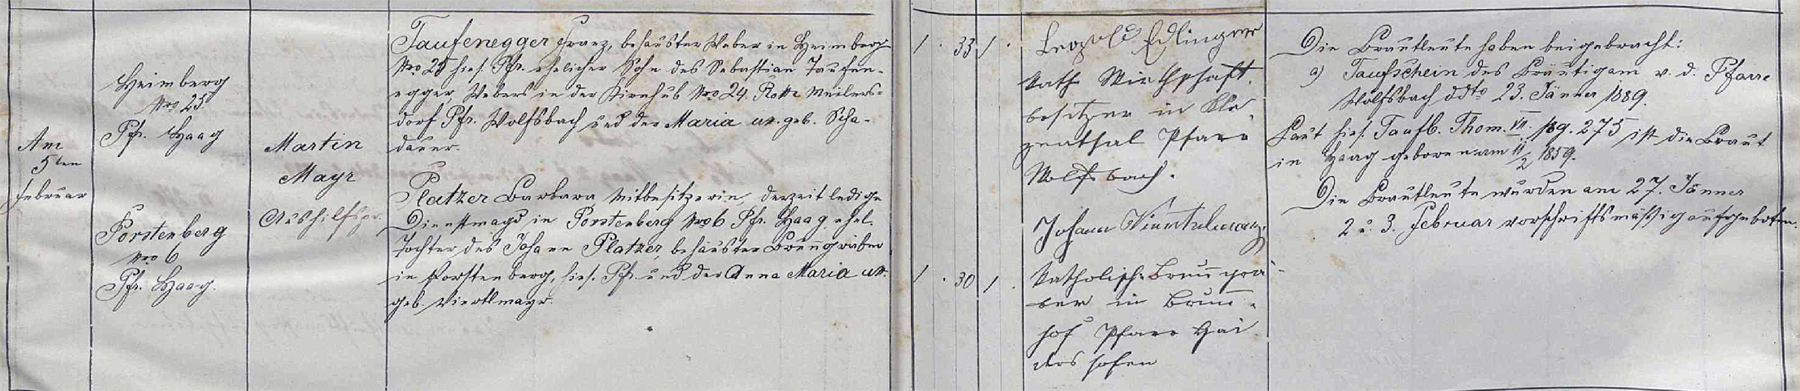 Am
5ten
Februar
Heimberg
Nro 25
Pfr. Haag
Porstenberg
Nro 6
Pfr. Haag.
Martin
Mayr
Aushilfspr.
Taufenegger Franz, behauster Weber in Heimberg
Nro 25 hies. Pfr. ehelicher Sohn des Sebastian Taufen-
egger Webers in der Nro 24 Rotte Meilers-
dorf Pfr. Wolfsbach und der Maria ux. geb. Scha-
dauer.
Platzer Barbara Mitbesitzerin, derzeit ledige
Dienstmagd in Porstenberg Nro 6 Pfr. Haag ehel.
Tochter des Johann Platzer, behauster Brunngraber
in Porstenberg, hies. Pfr. und der Anna Maria ux.
geb. Viertlmayr.
1 · 33 1 ·
1 · 30 1 ·
Leopold Edlinger
kath. Wirthschafts
besitzer in
Pfarre
Wolfsbach.
Johann
katholisch Brungra-
ber in Brunn-
hof Pfarre Hai
dershofen
Die Brautleute haben beigebracht:
a) Taufschein des Bräutigam v. d. Pfarre
Wolfsbach ddto 23. Jänner 1889.
Laut hies. Taufb. Thom. VII pag. 275 ist die Braut
in Haag geboren am 11/2 1859.
Die Brautleute wurden am 27. Jänner
2 u. 3. Februar vorschriftsmäßig aufgeboten.